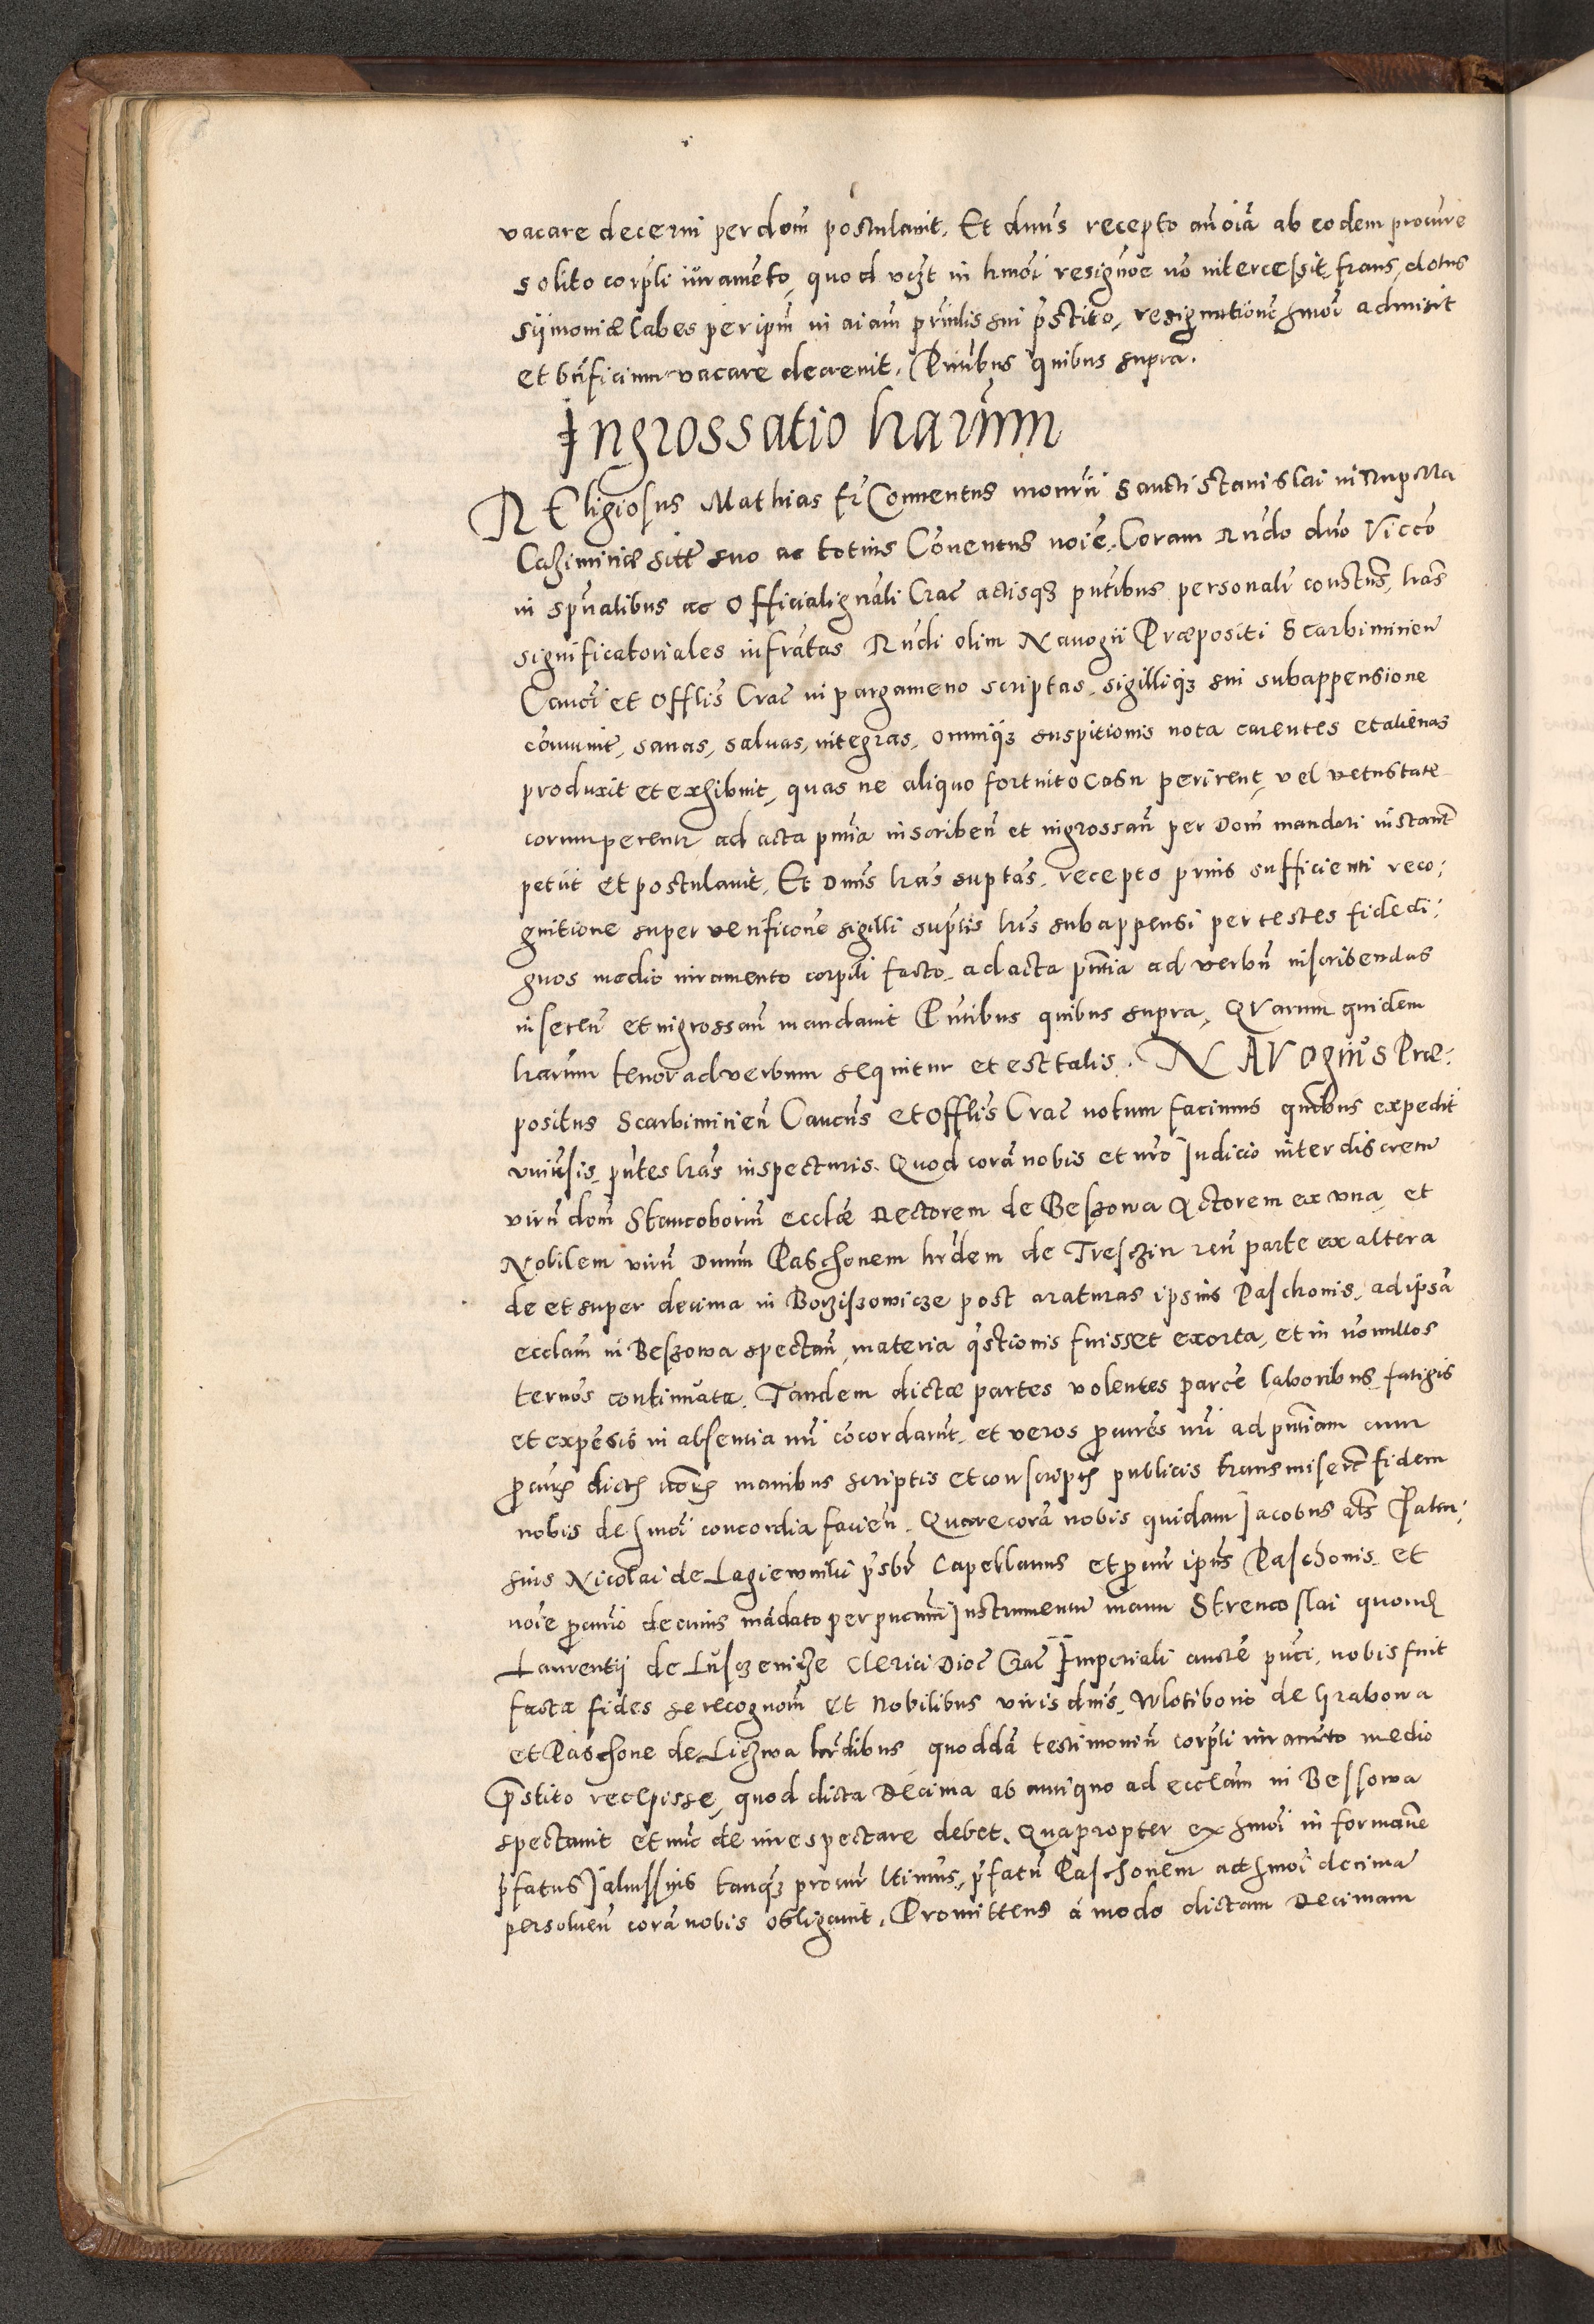 vacare decerni per dom̄ postulavit. Et dnūs recepto an̄ oīa ab eodem procure
solito corpl̄i iuramento, quod vcꝫt in hmōi resignōe nō intercessit fraus, dolus
siimoniæ labes per ipm̄ in aīam prn̄cl̄is sui p̄stito, resignationē hmōi admisit
et bn̄ficium vacare decrevit. Pn̄tibus quibus supra.
Ingrossatio lrarūm
REligiosus Mathias fr̄ Conventus monrīi Sancti Stanislai in Rupella
Cazimiriæ sitt̄ suo ac totius Cōventus noīe. Coram Rn̄do dn̄o Viccō
in spūalibus ac Officiali gn̄ali Crac̄ actisqꝫ pn̄tibus personalr̄ constūs, lrās
significatoriales infrātas Rn̄di olim Navogii Præpositi Scarbimirien̄
Cancrī et Offl̄is Crac̄ in pargameno scriptas, sigilliqꝫ sui subappensione
cōmunit̄, sanas, salvas, integras, omniqꝫ suspitionis nota carentes et alienas
produxit et exhibuit, quas ne aliquo fortuito casu perirent, vel vetustate
corrumperentr̄ ad acta pn̄tia inscriben̄ et ingrossan̄ per Dom̄ mandari instant̄
petiit et postulavit. Et Dnūs lrās suptās, recepto prius sufficienti reco:
gnitione super verificōne sigilli suptīs lrīs subappensi per testes fidedi:
gnos medio iuramento corpl̄i facto, ad acta pn̄tia ad verbū inscribendas
inseren̄ et ingrossan̄ mandavit Pn̄tibus quibus supra, QVarum quidem
lrarūm tenor ad verbum sequitur et est talis. NAVOgius Præ:
positus Scarbimirien̄ Cancrūs et Offl̄is Crac̄ notum facimus quibus expedit
univsis, pn̄tes lrās inspecturis. Quod corā nobis et nrō Iudicio inter discretū
virū dom̄ Stancoborium̄ eccl̄æ Rectorem de Beszowa Actorem ex una, et
Nobilem virū Dnūm Paschonem hrdem de Tresczin reū parte ex altera
de et super decima in Borziszowicze post araturas ipsius Paschonis, ad ipsā
eccl̄am in Beszowa spectan̄, materia q̄stionis fuisset exorta, et in nōnullos
ternōs continuata. Tandem dictæ partes volentes parcē laboribus, fatigis
et expēsis in absentia nrī cōcordarūt, et veros procures nrī ad pn̄tiam cum
procuris dictis manibus scriptis et conscriptis publicis transmiserūt fidem
nobis de hmōi concordia facien̄. Quare corā nobis quidam Iacobus als̄
suis Nicolai de Lagiewniki p̄sbr̄ Capellanus et procur ipsīus Paschonis, et
noīe procurio de cuius mādato per publicum Instrumentū manu Strencoslai quond̄
Laurentij de Lusczenicze Clerici Dioc̄ Crac̄ Imperiali auctē puci, nobis fuit
facta fides se recognom̄ et Nobilibus viris dnīs, Wlotiborio de Grabowa
et Paschone de Liczwa hrdibus quoddā testimoniū corpl̄i iuramēto medio
p̄stito recepisse, quod dicta Decima ab antiquo ad eccl̄am in Bessowa
spectavit et nūc de iure spectare debet. Quapropter ex hmōi informatiōe
p̄fatus Ialussius tanqꝫ procur ltimus, p̄fatū Paschonem ad hmōi decimā
persolven̄ corā nobis obligavit, Promittens a modo dictam Decimam